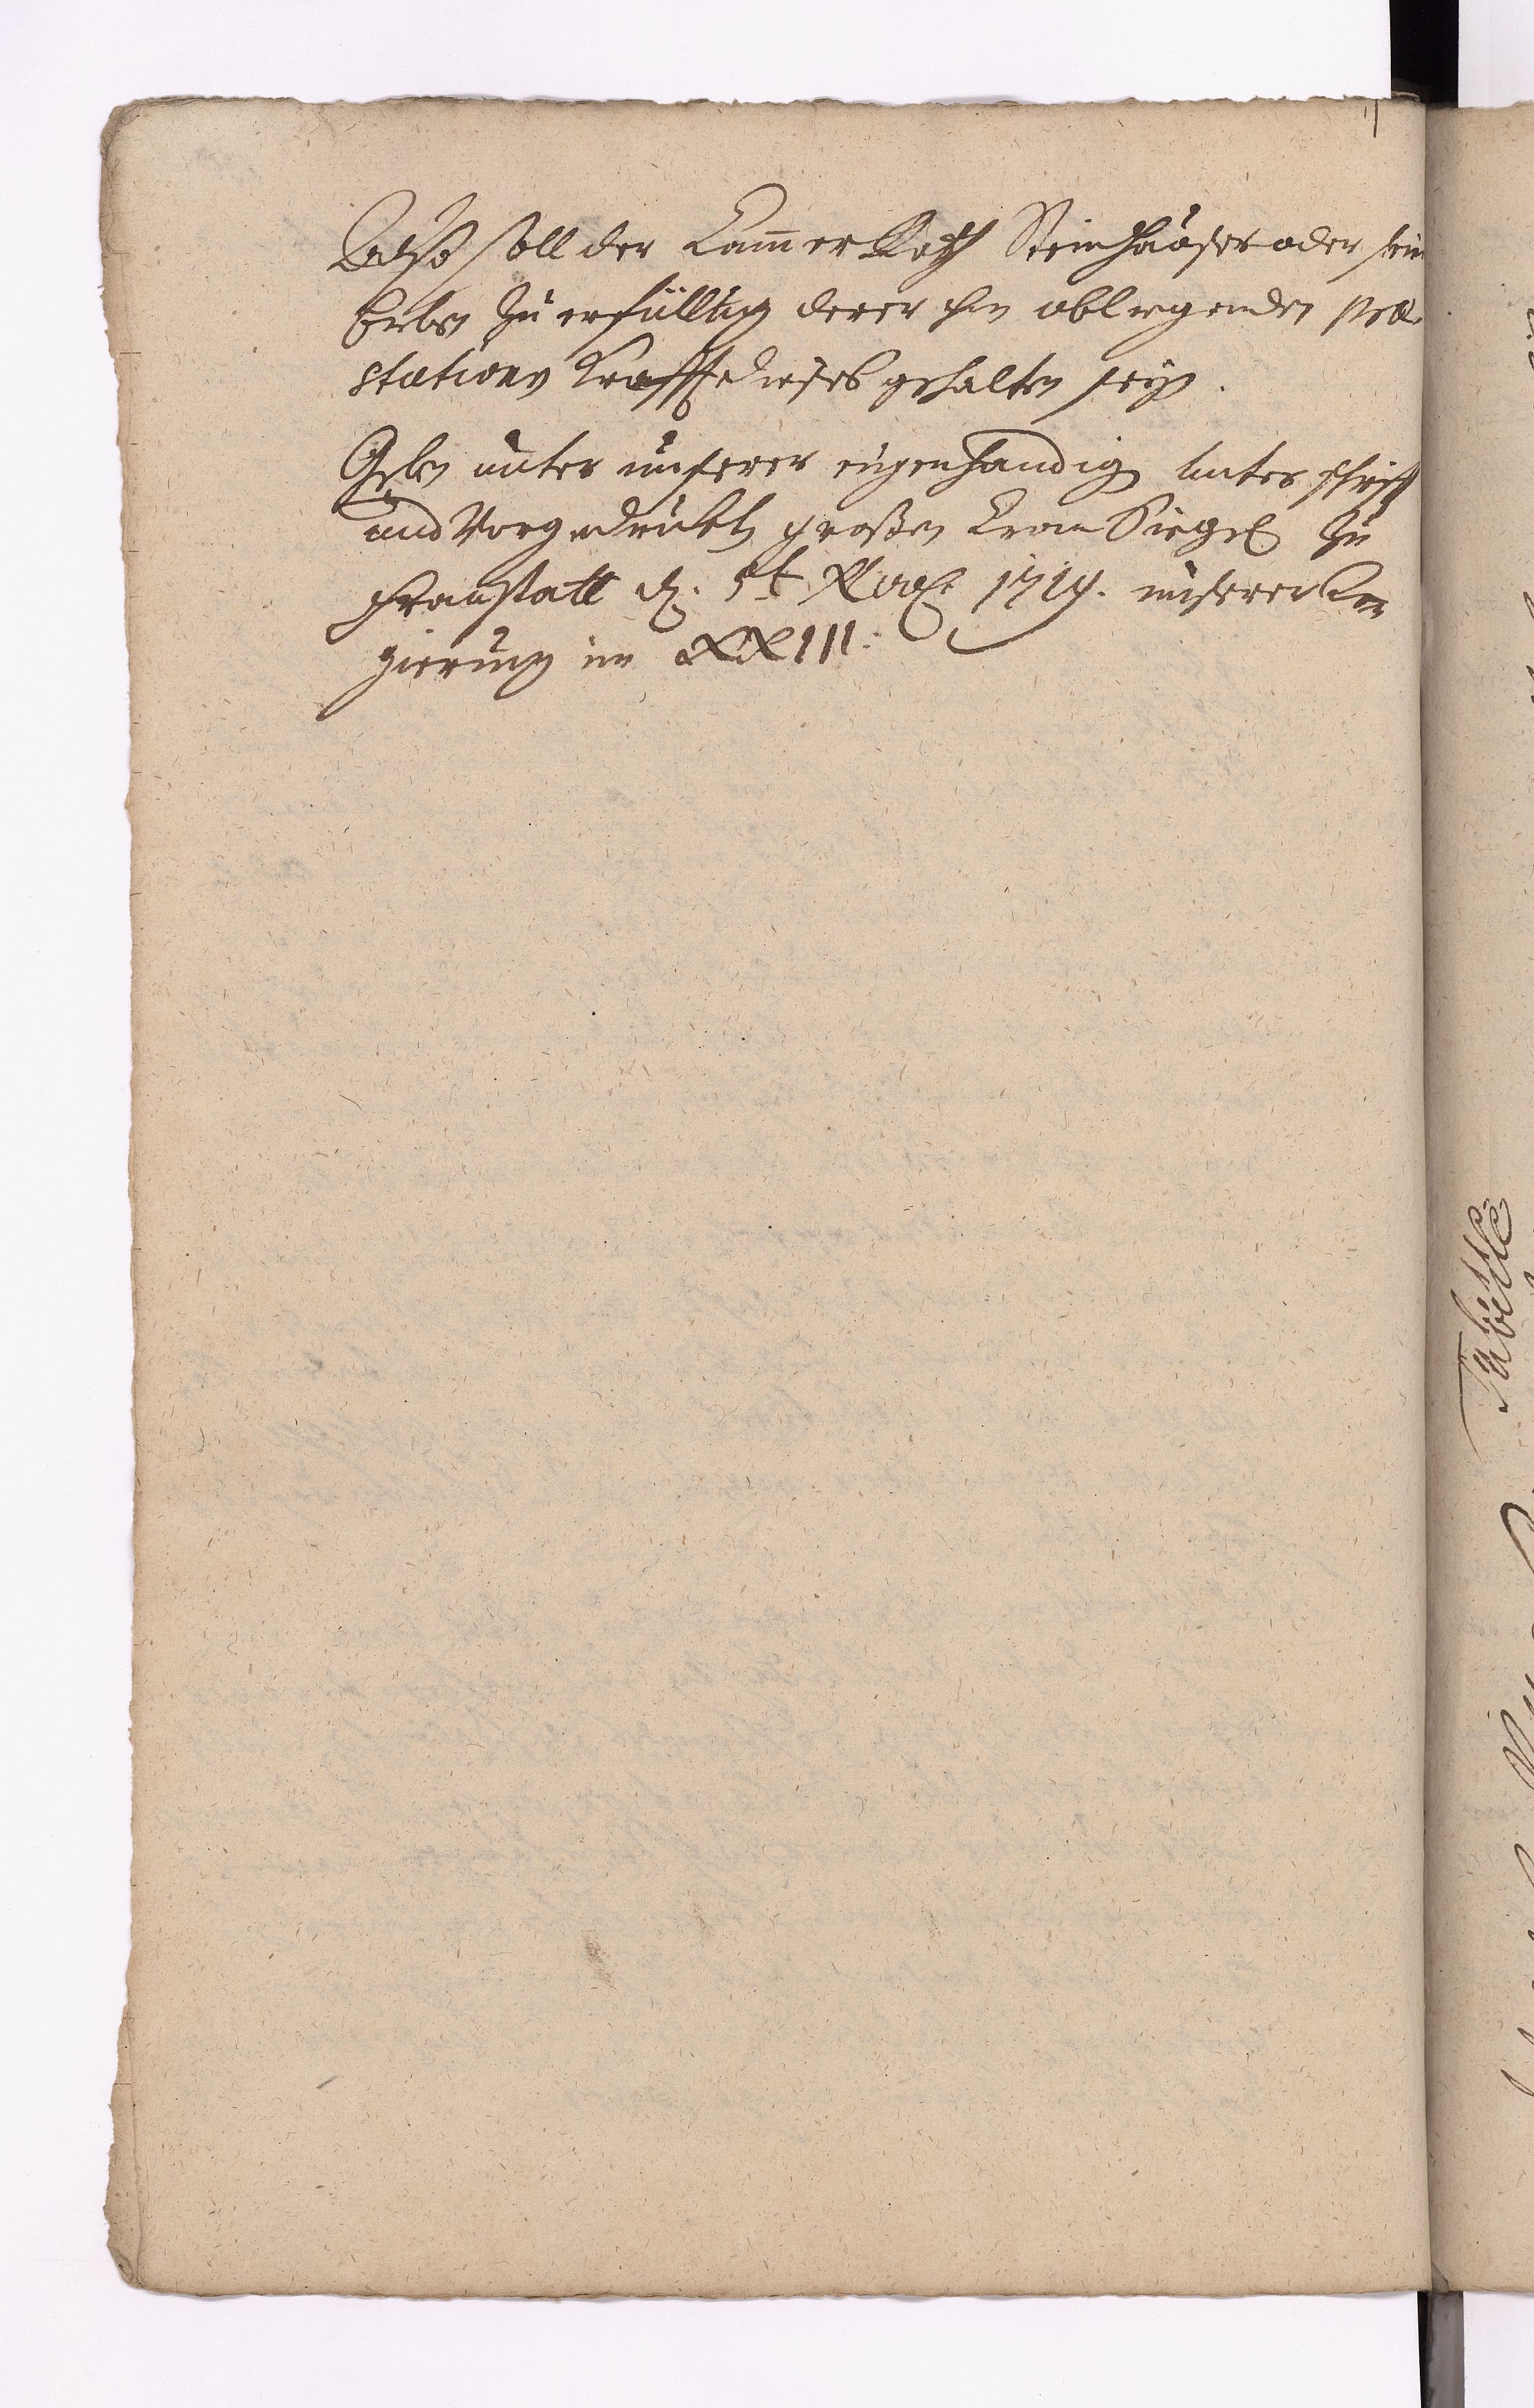 Also soll der Cammer Rath Steinhäuser oder sein
Erben zu erfüllung derer ihm obliegenden præ
stationen Krafft dieses gehalten seyn.
Geben unter unserer eigenhändig unterschrifft
und Vorgedruckten großen Cron Siegel zu
Fraustatt d. 5t Nov: 1719. unserer Re
gierung im XXIII.
Tabelle